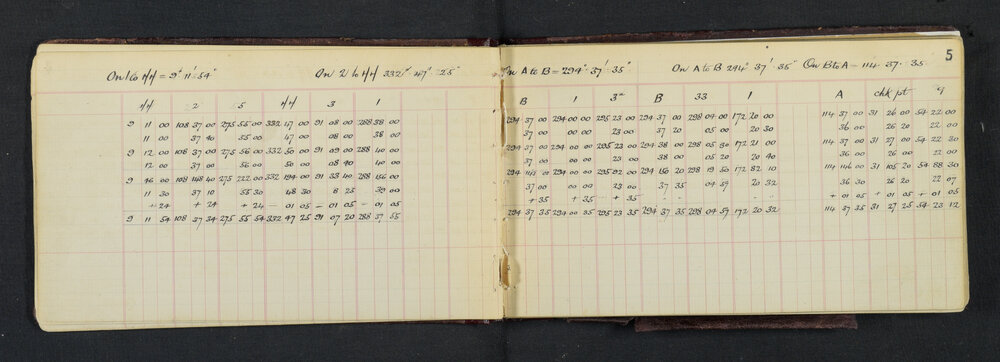 5
On 1 to = 9° 11' 54" On 2 to 332° 47' 25" On A to B = 294° 37' 35" On A to B 294° 37' 35" On B to A = 114 37 35
2 5 3 1 B 1 3 B 33 1 A chk pt 9
9 11 00 108 37 00 275 55 00 332 47 00 91 08 00 288 38 00 294 37 00 294 00 00 295 23 00 294 37 00 298 04 00 172 20 00 114 37 00 31 26 00 54 22 00
11 00 37 40 55 00 47 00 08 00 38 00 37 00 00 00 23 00 37 20 05 00 20 30 36 00 26 20 22 00
9 12 00 108 37 00 275 56 00 332 50 00 91 09 00 288 40 00 294 37 00 294 00 00 295 23 00 294 38 00 298 05 30 172 21 00 114 37 00 31 27 00 54 22 30
12 00 37 00 56 00 50 00 08 40 40 00 37 00 00 00 23 00 38 00 05 20 20 40 36 00 26 00 22 00
9 46 00 108 148 40 275 222 00 332 194 00 91 33 40 288 156 00 294 00 295 92 00 294 150 20 298 19 50 172 82 10 114 146 00 31 105 20 54 88 30
11 30 37 10 55 30 48 30 8 25 39 00 37 00 00 00 23 00 37 35 04 57 20 32 36 30 26 20 22 07
+ 24 + 24 + 24 — 01 05 — 01 05 — 01 05 + 35 + 35 + 35 - - - - - - + 01 05 + 01 05 + 01 05
9 11 54 108 37 34 275 55 54 332 47 25 91 07 20 288 37 55 294 37 35 294 00 35 295 23 35 294 37 35 298 04 57 172 20 32 114 37 35 31 27 25 54 23 12